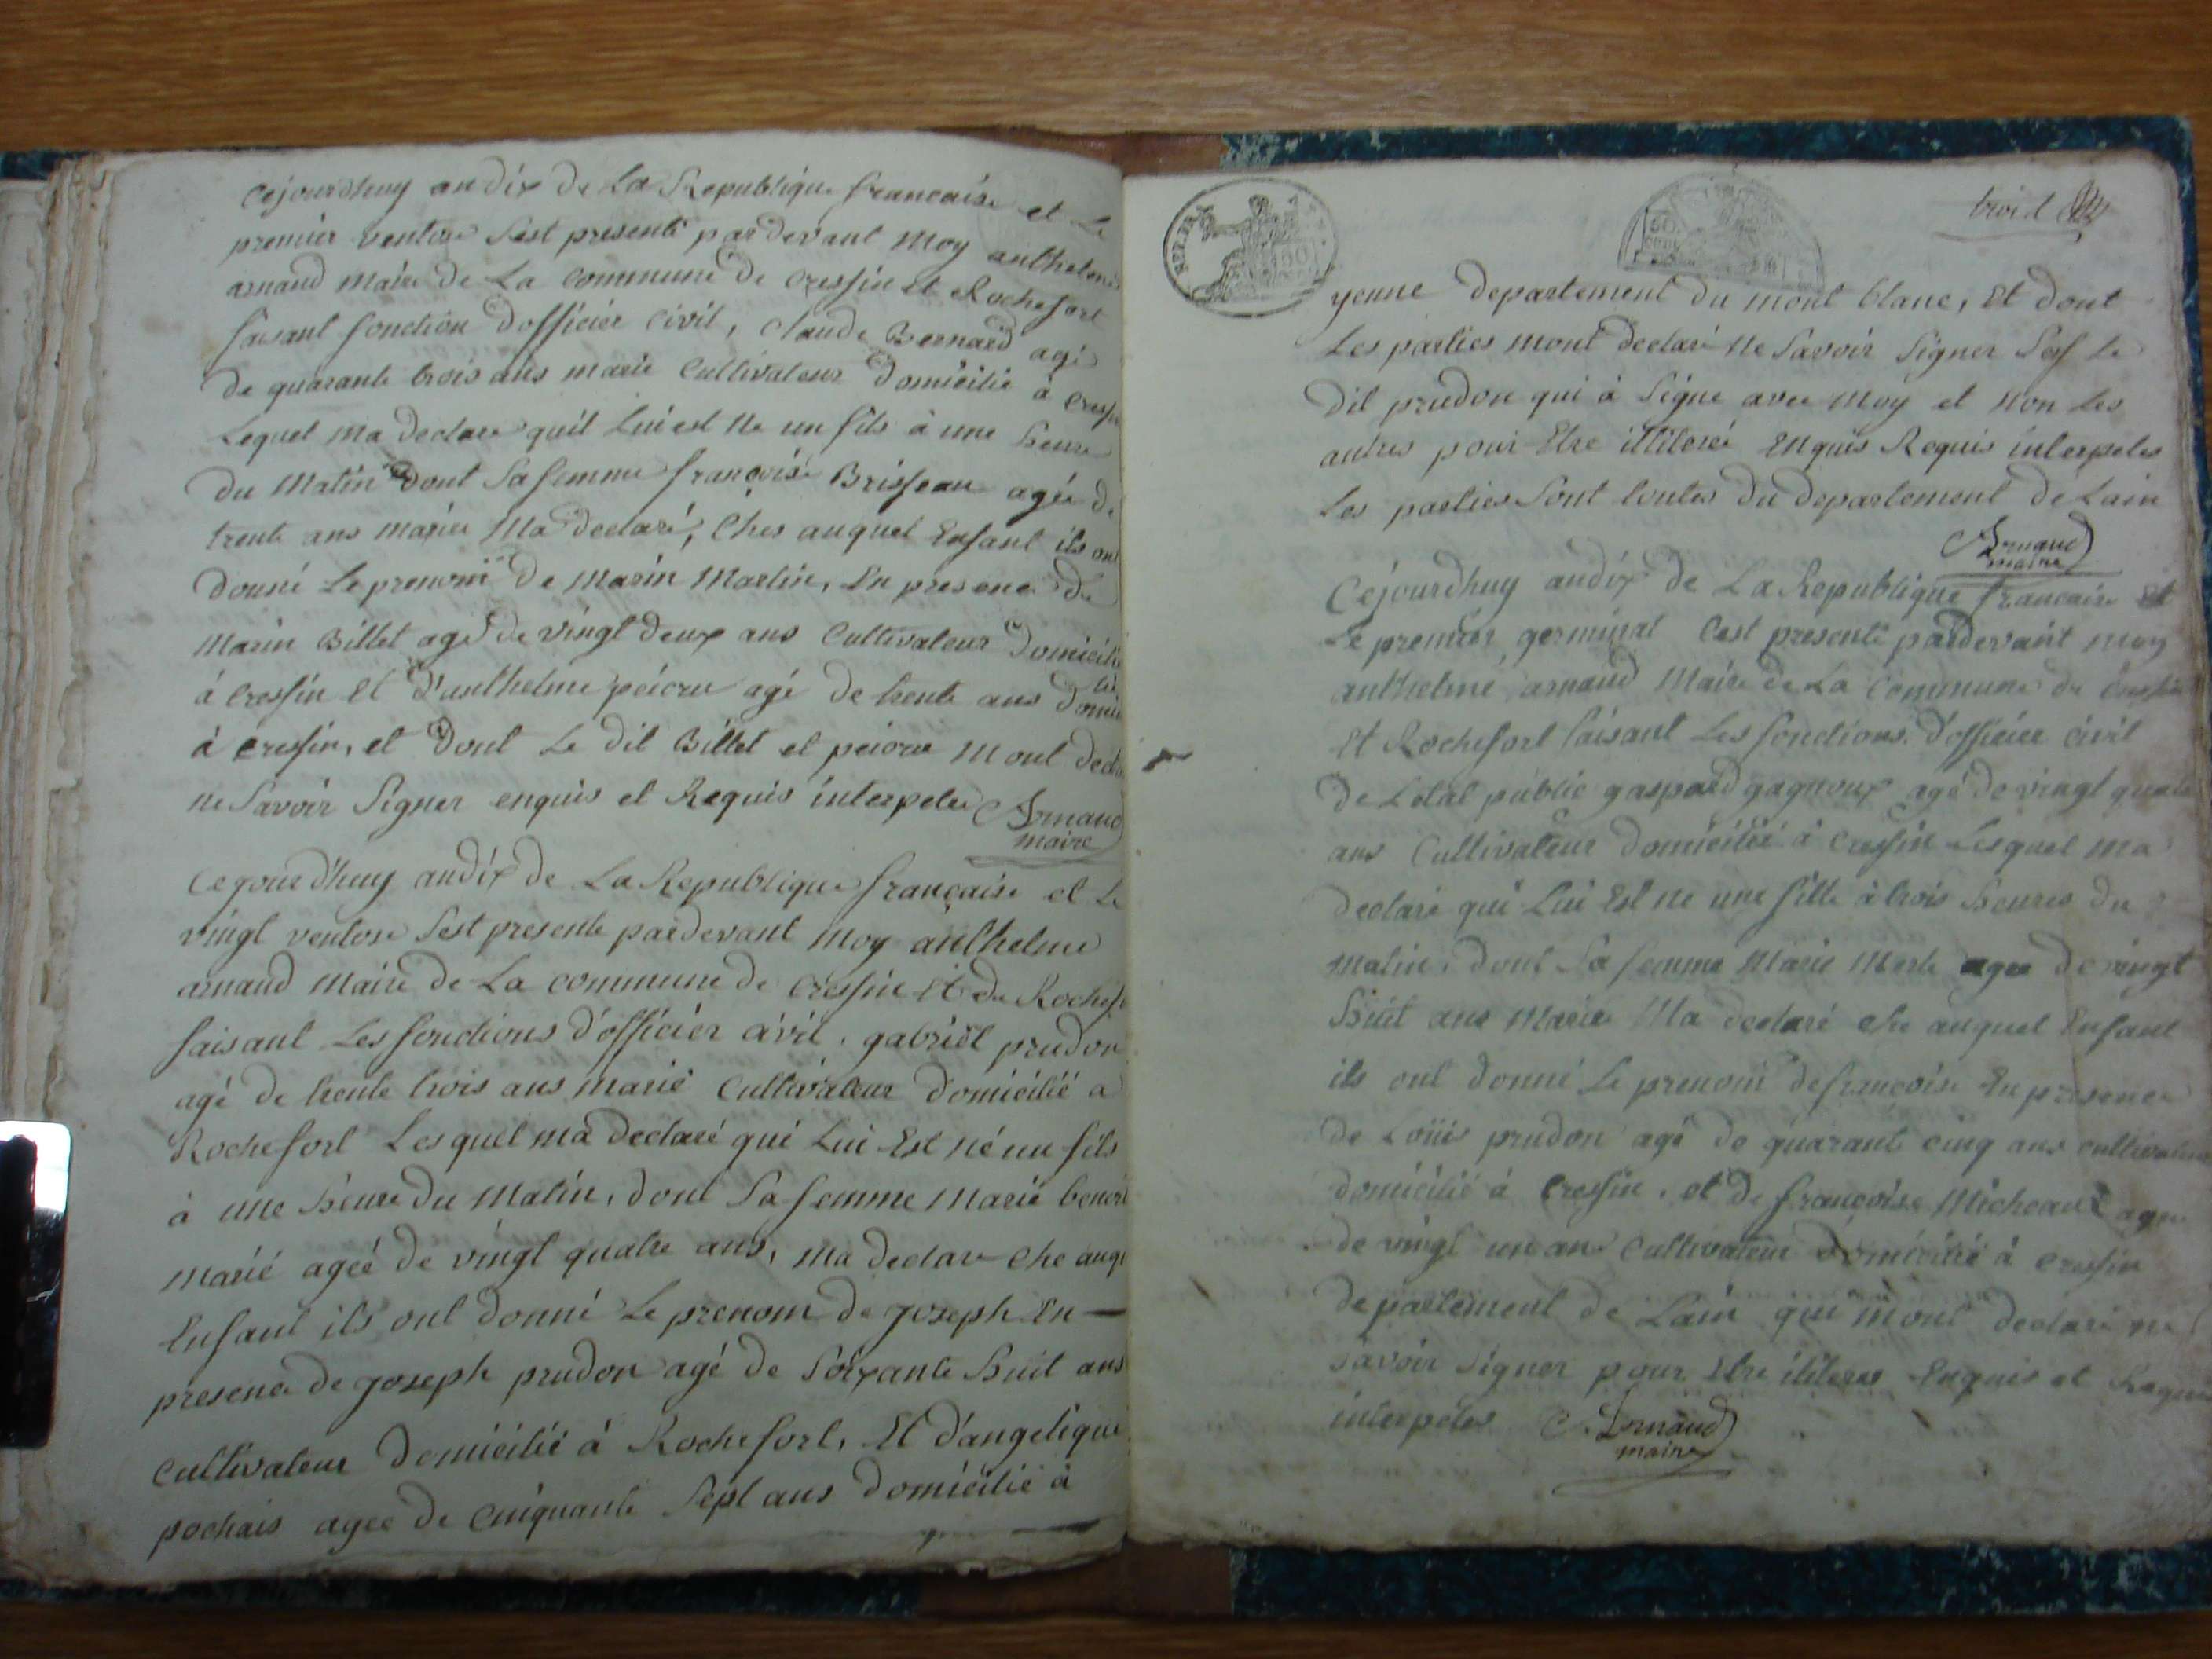 Cejourdhuy an dix de la Republique francaise et le
premier ventose Sest presenté pardevant moy anthelme
arnaud maire de La Commune de Cressin et Rochefort
faisant fonction dofficier Civil, Claude Bernard agé
de quarante trois ans marié Cultivateur domicilié à Cressin
Lequel ma declaré quil Lui est né un fils à une heure
du Matin dont Sa femme françoise Brisseau agée de
trente ans mariée Ma declaré, Ches auquel Enfant ils ont
donné Le prenom de Marin Martin, En presence de
Marin Billet agé de vingt deux ans Cultivateur domicilié
à Cressin Et d'anthelme peicru agé de trente ans domici
lié
à Cressin, et dont Le dit Billet et peicru Mont declaré
ne Savoir Signer enquis et Requis interpelés Arnaud
maire
Cejourd'huy an dix de La Republique française et Le
vingt ventose Sest presenté pardevant moy anthelme
arnaud Maire de La commune de Cressin Et de Rochefort
faisant Les fonctions d'officier civil, gabriel prudon
agé de trente trois ans marié Cultivateur domicilié a
Rochefort Lesquel ma declaré qui Lui Est né un fils
à une heure du Matin, dont Sa femme Marie benoit
marié ageé de vingt quatre ans, ma declaré Che auquel
Enfant ils ont donné Le prenom de joseph En
presence de joseph prudon agé de Soixante huit ans
Cultivateur domicilié à Rochefort, Et d'angelique
pochais ageé de Cinquante Sept ans domicilié à
trois
yenne departement du mont blanc, Et dont
Les parties mont declaré ne Savoir Signer Sauf Le
dit prudon qui à Signé avec moy et non Les
autres pour Etre illiteré Enquis Requis interpelés
Les parties Sont toutes du departement de Lain
Arnaud
maire
Cejourdhuy an dix de La Republique francaise Et
Le premier germinal Cest presenté pardevant moy
anthelme arnaud Maire de La Commune de Cressin
Et Rochefort faisant Les fonctions d'officier civil
de Letat public gaspard gagnoux agé de vingt quatre
ans Cultivateur domicilié à Cressin Lesquel ma
declaré qui Lui Est né une fille à trois heures du
matin, dont Sa femme Marie Merle agée de vingt
huit ans Mariée Ma declaré che auquel Enfant
ils ont donné Le prenom de francoise En presence
de Loüis prudon agé de quarante cinq ans cultivateur
domicilié à Cressin, et de francoise Micheaud agée
de vingt un ans Cultivateur domicilié à Cressin
departement de Lain qui mont declaré ne
Savoir Signer pour Etre illiteres Enquis et Requis
interpelés Arnaud
maire